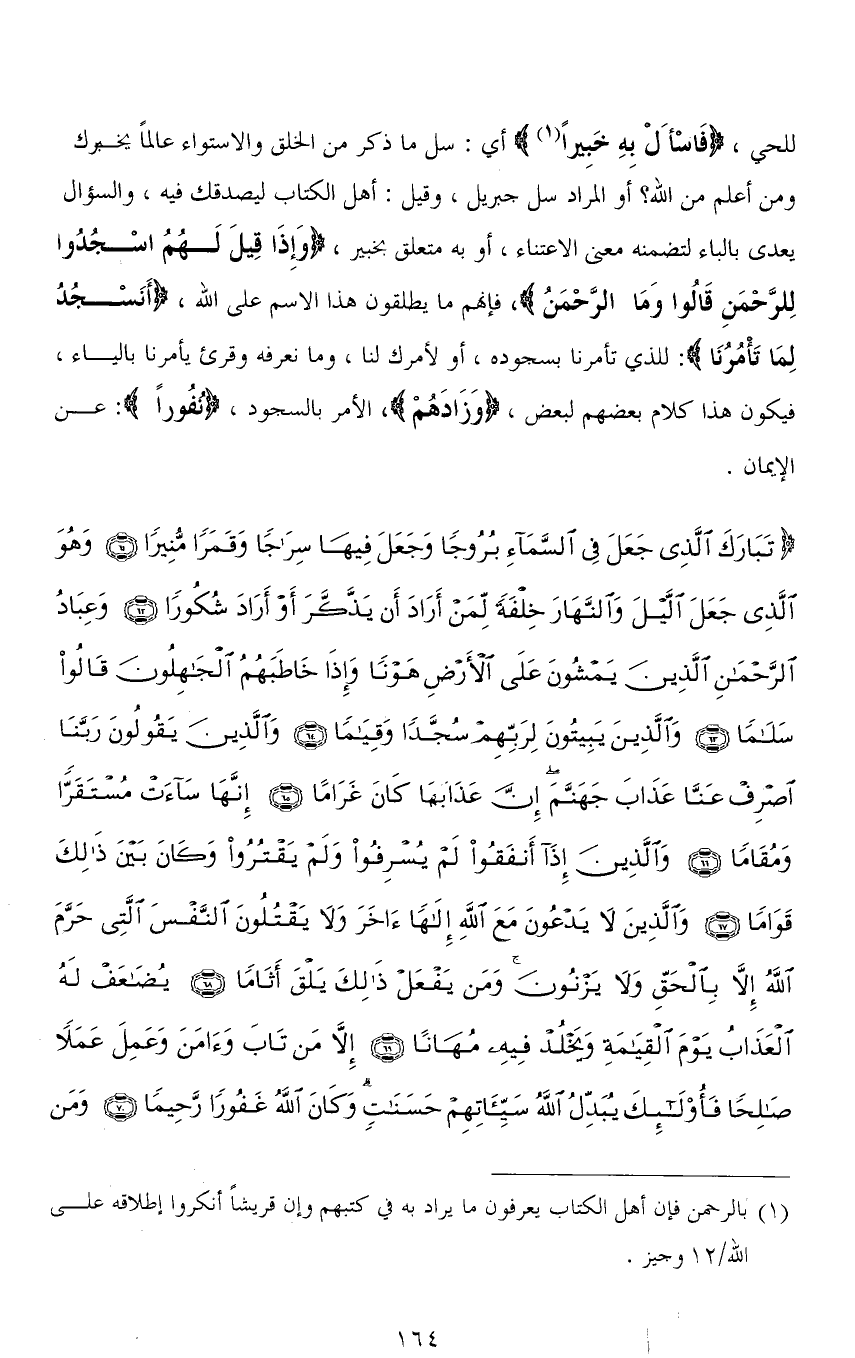 للحي ، ﴿فَاسْأَلْ بِهِ خَبِيراً(١)﴾ أي : سل ما ذكر من الخلق والاستواء عالماً يخبرك
ومن أعلم من الله؟ أو المراد سل جبريل ، وقيل : أهل الكتاب ليصدقك فيه ، والسؤال
يعدى بالباء لتضمنه معنى الاعتناء ، أو به متعلق بخبير ، ﴿وَإِذَا قِيلَ لَهُمُ اسْجُدُوا
لِلرَّحْمَنِ قَالُوا وَمَا الرَّحْمَنُ﴾، فإنهم ما يطلقون هذا الاسم على الله ، ﴿أَنَسْجُدُ
لِمَا تَأْمُرُنَا﴾: للذي تأمرنا بسجوده ، أو لأمرك لنا ، وما نعرفه وقرئ يأمرنا بالياء ،
فيكون هذا كلام بعضهم لبعض ، ﴿وَزَادَهُمْ﴾، الأمر بالسجود ، ﴿نُفُوراً﴾: عن
الإيمان .
﴿ تَبَارَكَ ٱلَّذِى جَعَلَ فِى ٱلسَّمَآءِ بُرُوجًا وَجَعَلَ فِيهَا سِرَٰجًا وَقَمَرًا مُّنِيرًا ٦١ وَهُوَ
ٱلَّذِى جَعَلَ ٱلَّيْلَ وَٱلنَّهَارَ خِلْفَةً لِّمَنْ أَرَادَ أَن يَذَّكَّرَ أَوْ أَرَادَ شُكُورًا ٦٢ وَعِبَادُ
ٱلرَّحْمَٰنِ ٱلَّذِينَ يَمْشُونَ عَلَى ٱلْأَرْضِ هَوْنًا وَإِذَا خَاطَبَهُمُ ٱلْجَٰهِلُونَ قَالُوا۟
سَلَٰمًا ٦٣ وَٱلَّذِينَ يَبِيتُونَ لِرَبِّهِمْ سُجَّدًا وَقِيَٰمًا ٦٤ وَٱلَّذِينَ يَقُولُونَ رَبَّنَا
ٱصْرِفْ عَنَّا عَذَابَ جَهَنَّمَ ۖ إِنَّ عَذَابَهَا كَانَ غَرَامًا ٦٥ إِنَّهَا سَآءَتْ مُسْتَقَرًّا
وَمُقَامًا ٦٦ وَٱلَّذِينَ إِذَآ أَنفَقُوا۟ لَمْ يُسْرِفُوا۟ وَلَمْ يَقْتُرُوا۟ وَكَانَ بَيْنَ ذَٰلِكَ
قَوَامًا ٦٧ وَٱلَّذِينَ لَا يَدْعُونَ مَعَ ٱللَّهِ إِلَٰهًا ءَاخَرَ وَلَا يَقْتُلُونَ ٱلنَّفْسَ ٱلَّتِى حَرَّمَ
ٱللَّهُ إِلَّا بِٱلْحَقِّ وَلَا يَزْنُونَ ۚ وَمَن يَفْعَلْ ذَٰلِكَ يَلْقَ أَثَامًا ٦٨ يُضَٰعَفْ لَهُ
ٱلْعَذَابُ يَوْمَ ٱلْقِيَٰمَةِ وَيَخْلُدْ فِيهِۦ مُهَانًا ٦٩ إِلَّا مَن تَابَ وَءَامَنَ وَعَمِلَ عَمَلًا
صَٰلِحًا فَأُو۟لَٰٓئِكَ يُبَدِّلُ ٱللَّهُ سَيِّـَٔاتِهِمْ حَسَنَٰتٍ ۗ وَكَانَ ٱللَّهُ غَفُورًا رَّحِيمًا ٧٠ وَمَن
(١) بالرحمن فإن أهل الكتاب يعرفون ما يراد به في كتبهم وإن قريشاً أنكروا إطلاقه على
الله/١٢ وجيز .
١٦٤